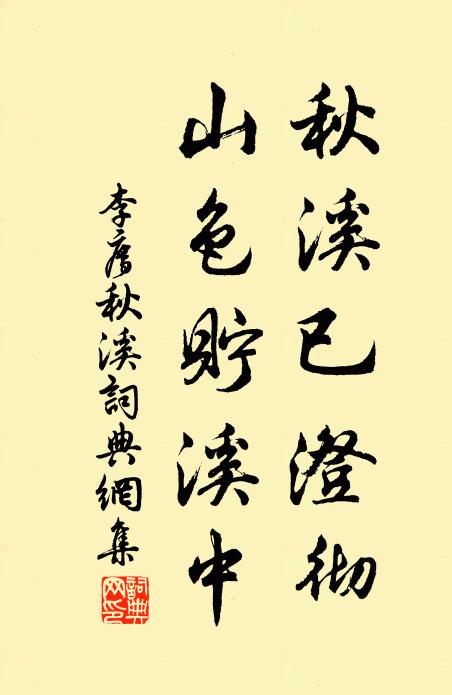 秋溪已澄彻
山色貯溪中
李廌秋溪詞典網集
詞典
网印